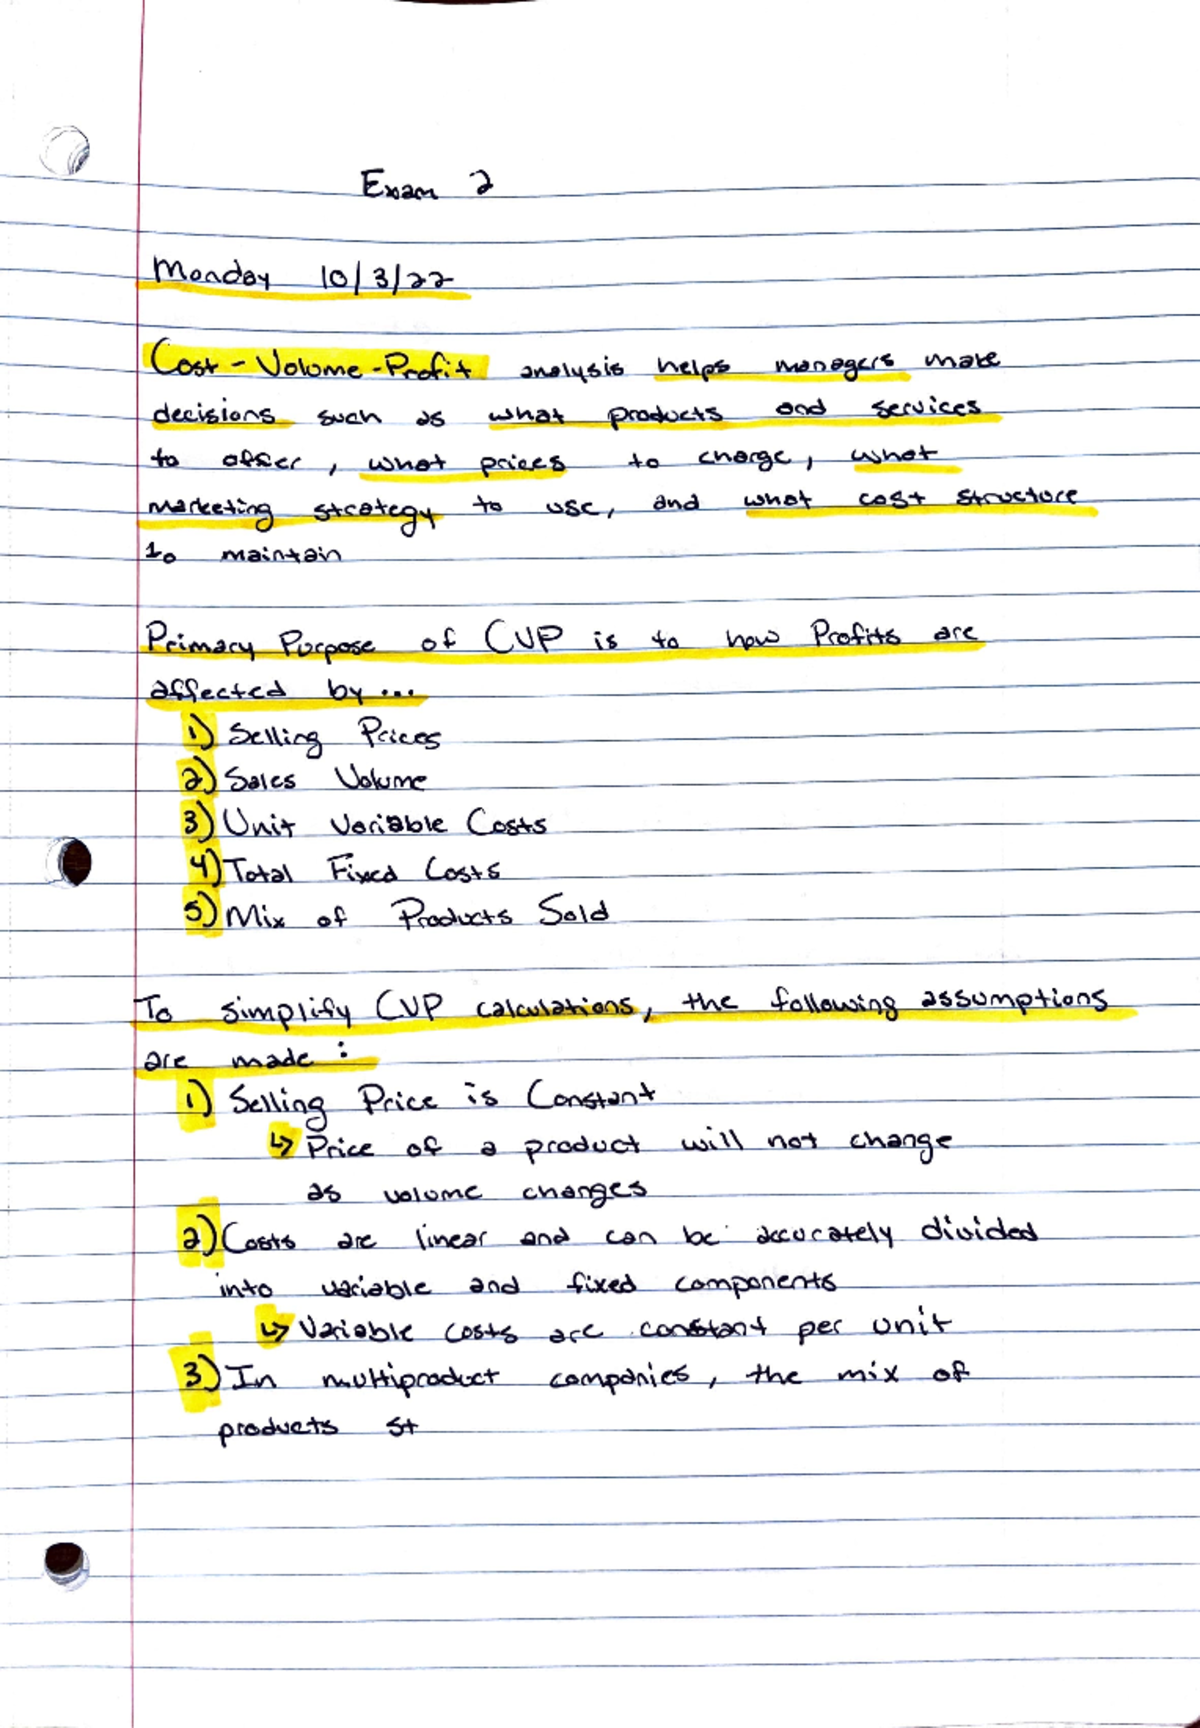 Exam 2
Monday 10/3/22
Cost-Volume-Profit analysis helps managers make
decisions such as what products and services
to offer, what prices to charge, what
marketing strategy to use, and what cost structure
to maintain
Primary Purpose of CVP is to how Profits are
affected by...
1) Selling Prices
2) Sales Volume
3) Unit Variable Costs
4) Total Fixed Costs
5) Mix of Products Sold
To simplify CVP calculations, the following assumptions
are made:
1) Selling Price is Constant
↳ Price of a product will not change
as volume changes
2) Costs are linear and can be accurately divided
into variable and fixed components
↳ Variable costs are constant per unit
3) In multiproduct companies, the mix of
products st